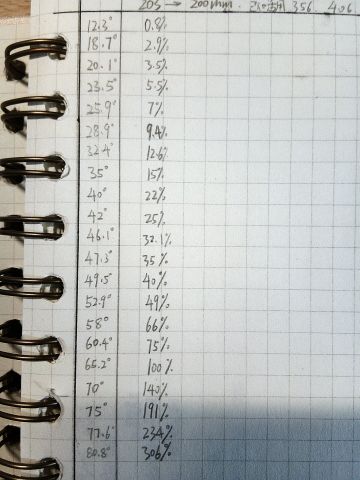 205 → 200mm. 356. 406
12.3° 0.8%
18.7° 2.9%
20.1° 3.5%
23.5° 5.5%
25.9° 7%
28.9° 9.4%
32.4° 12.6%
35° 15%
40° 22%
42° 25%
46.1° 32.1%
47.3° 35%
49.5° 40%
52.9° 49%
58° 66%
60.4° 75%
65.2° 100%
70° 140%
75° 191%
77.6° 234%
80.8° 306%